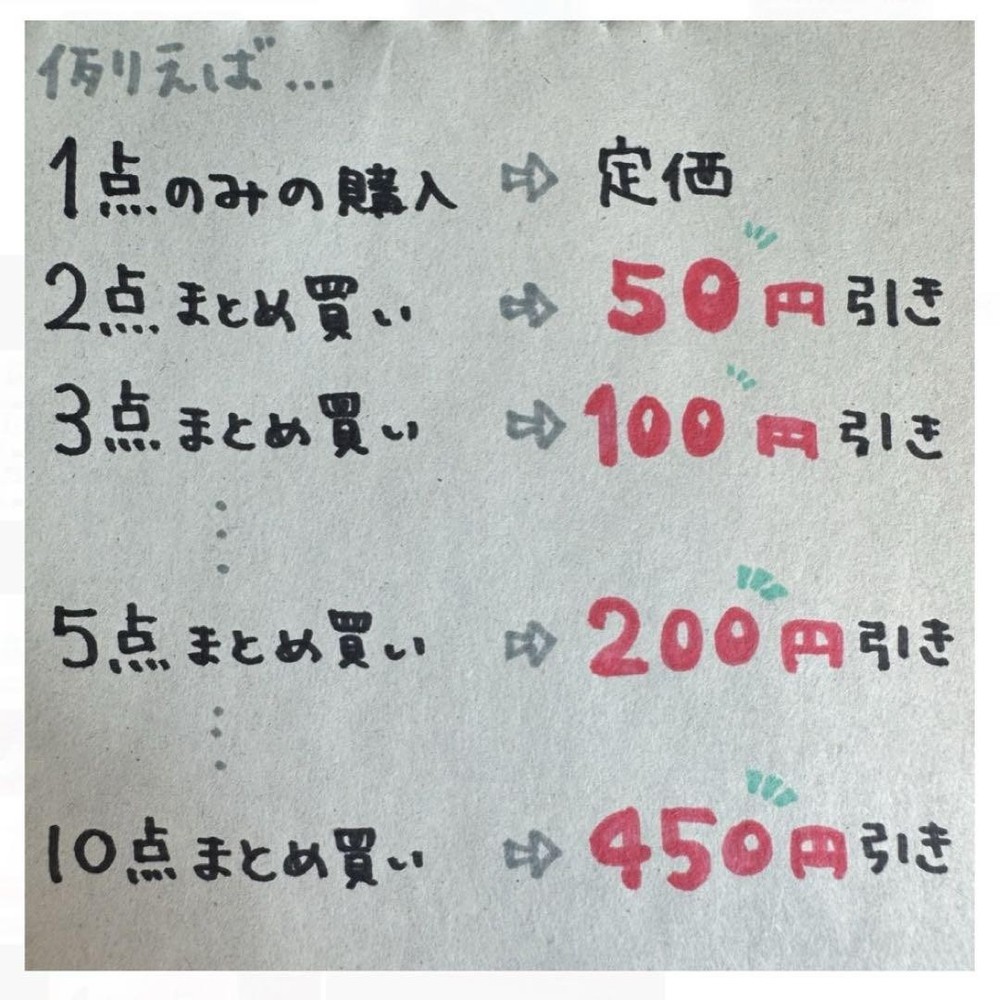 例えば...
1点のみの購入 ⇨ 定価
2点まとめ買い ⇨ 50円引き
3点まとめ買い ⇨ 100円引き
⋮
5点まとめ買い ⇨ 200円引き
⋮
10点まとめ買い ⇨ 450円引き